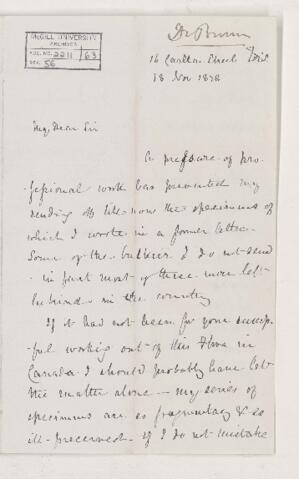 McGILL UNIVERSITY
ARCHIVES
ACC. NO. 2211 / 63
REF. 56
Dr Brown
16 Carlton Street Edin
18 Nov 1878
My Dear Sir
A pressure of pro-
fessional work has prevented my
sending off till now the specimens of
which I wrote in a former letter.
Some of the bulkier I do not send
- in fact most of these were left
behind in the country
If it had not been for your success-
ful working out of this Flora in
Canada I should probably have left
the matter alone - my series of
specimens are so fragmentary & so
ill-preserved. If I do not mistake